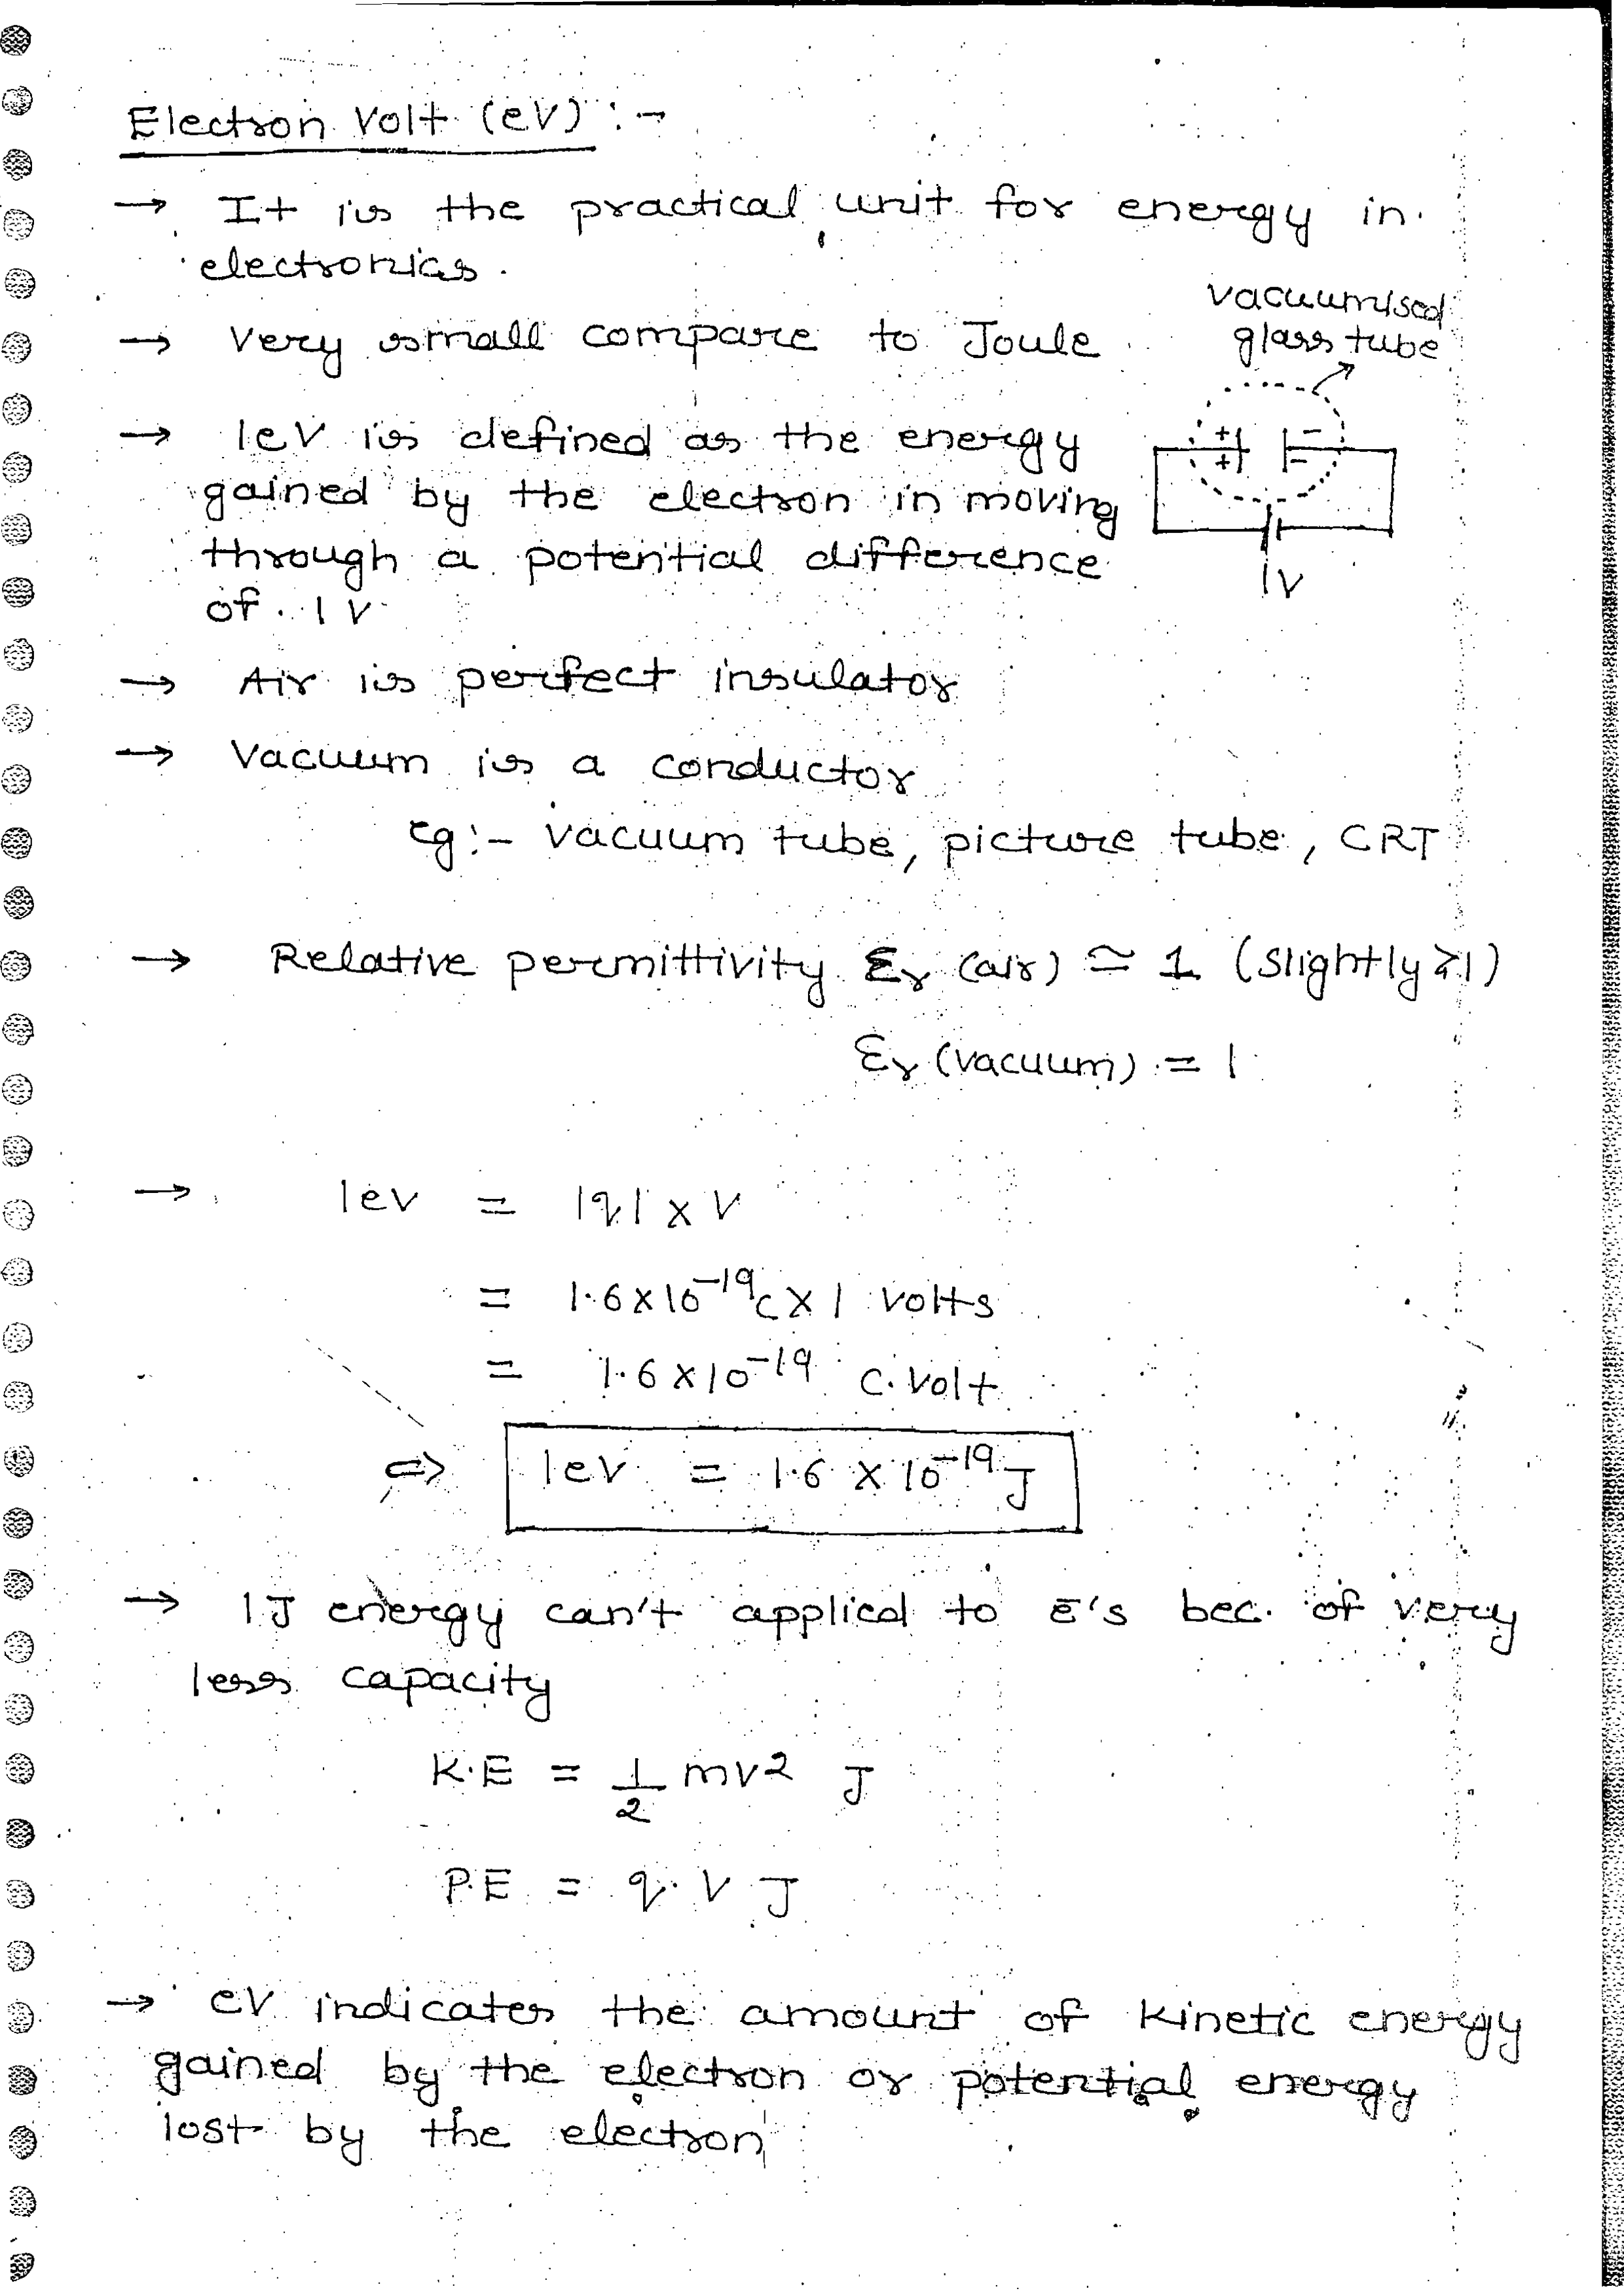 Electron Volt (eV) :-
→ It is the practical unit for energy in
electronics.
→ Very small compare to Joule
vacuumised
glass tube
→ 1eV is defined as the energy
gained by the electron in moving
through a potential difference
of 1V
+ -
+ -
1V
→ Air is perfect insulator
→ Vacuum is a conductor
eg:- vacuum tube, picture tube, CRT
→ Relative permittivity εr (air) ≃ 1 (slightly >1)
εr (vacuum) = 1
→ 1eV = |q| x V
= 1.6x10⁻¹⁹C x 1 volts
= 1.6x10⁻¹⁹ C.Volt
⇒ 1eV = 1.6 x 10⁻¹⁹ J
→ 1J energy can't applied to e̅'s bec. of very
less capacity
K.E = 1/2 mv2 J
P.E = q.V J
→ eV indicates the amount of kinetic energy
gained by the electron or potential energy
lost by the electron